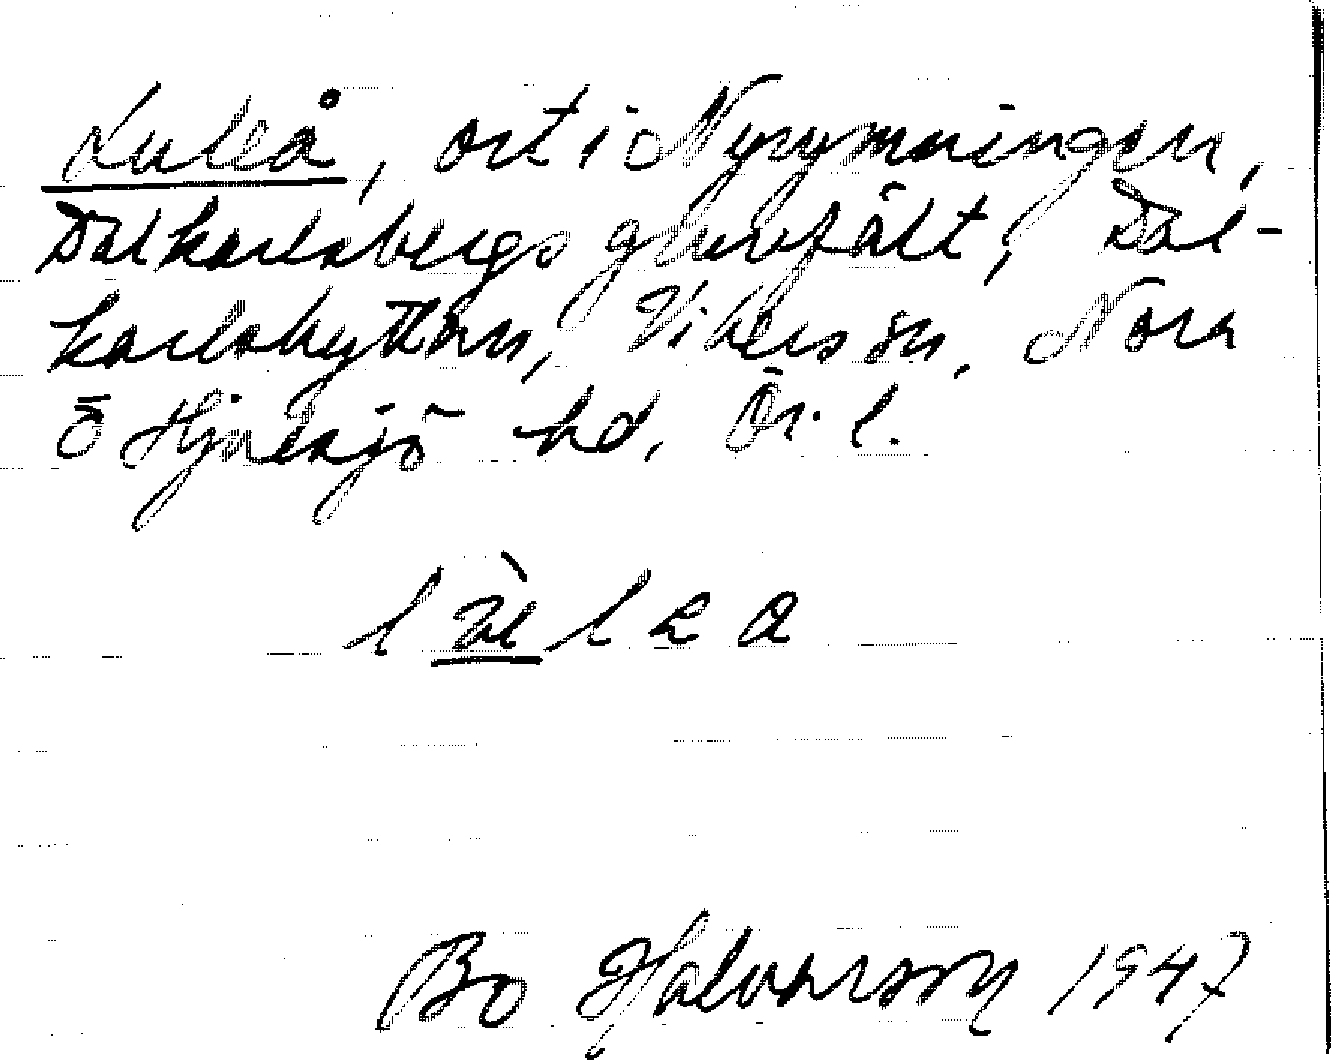 Luleå, ort i Nyrymningen,
Dalkarlsbergs gruvfält, Dal-
karlshyttan, Vikers sn, Nora
o Hjulsjö hd, Ör. l.
Bo Halvarsson 1947